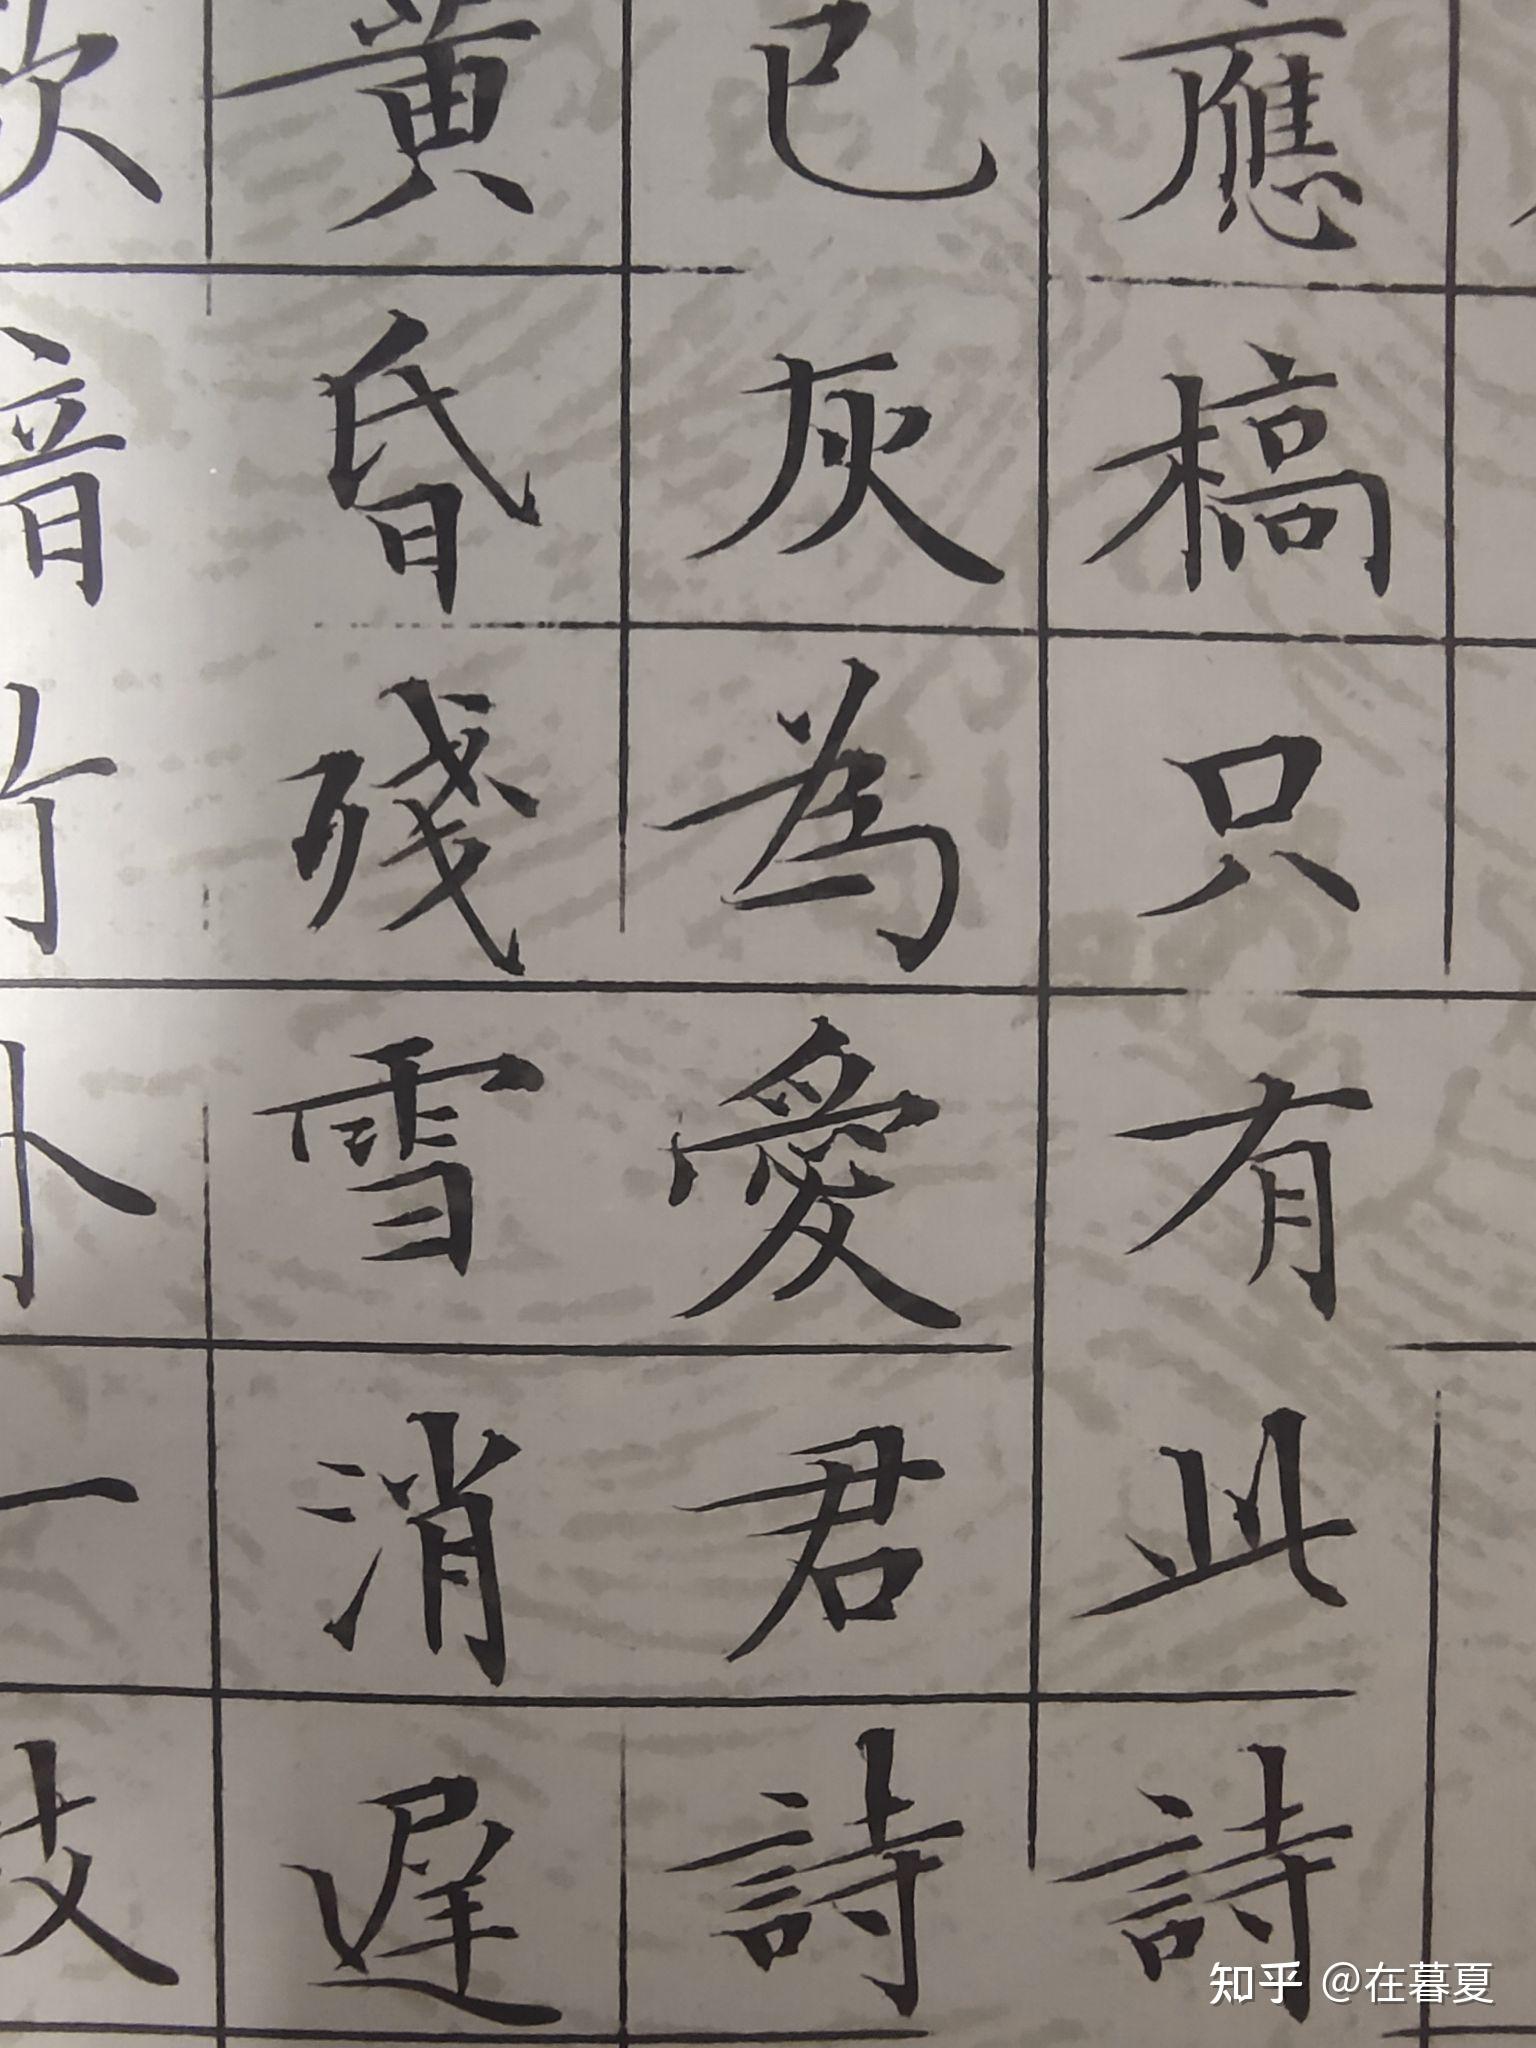 應槁只有此詩
已灰為愛君詩
黃昏殘雪消遲
竹外一枝
知乎 @在暮夏